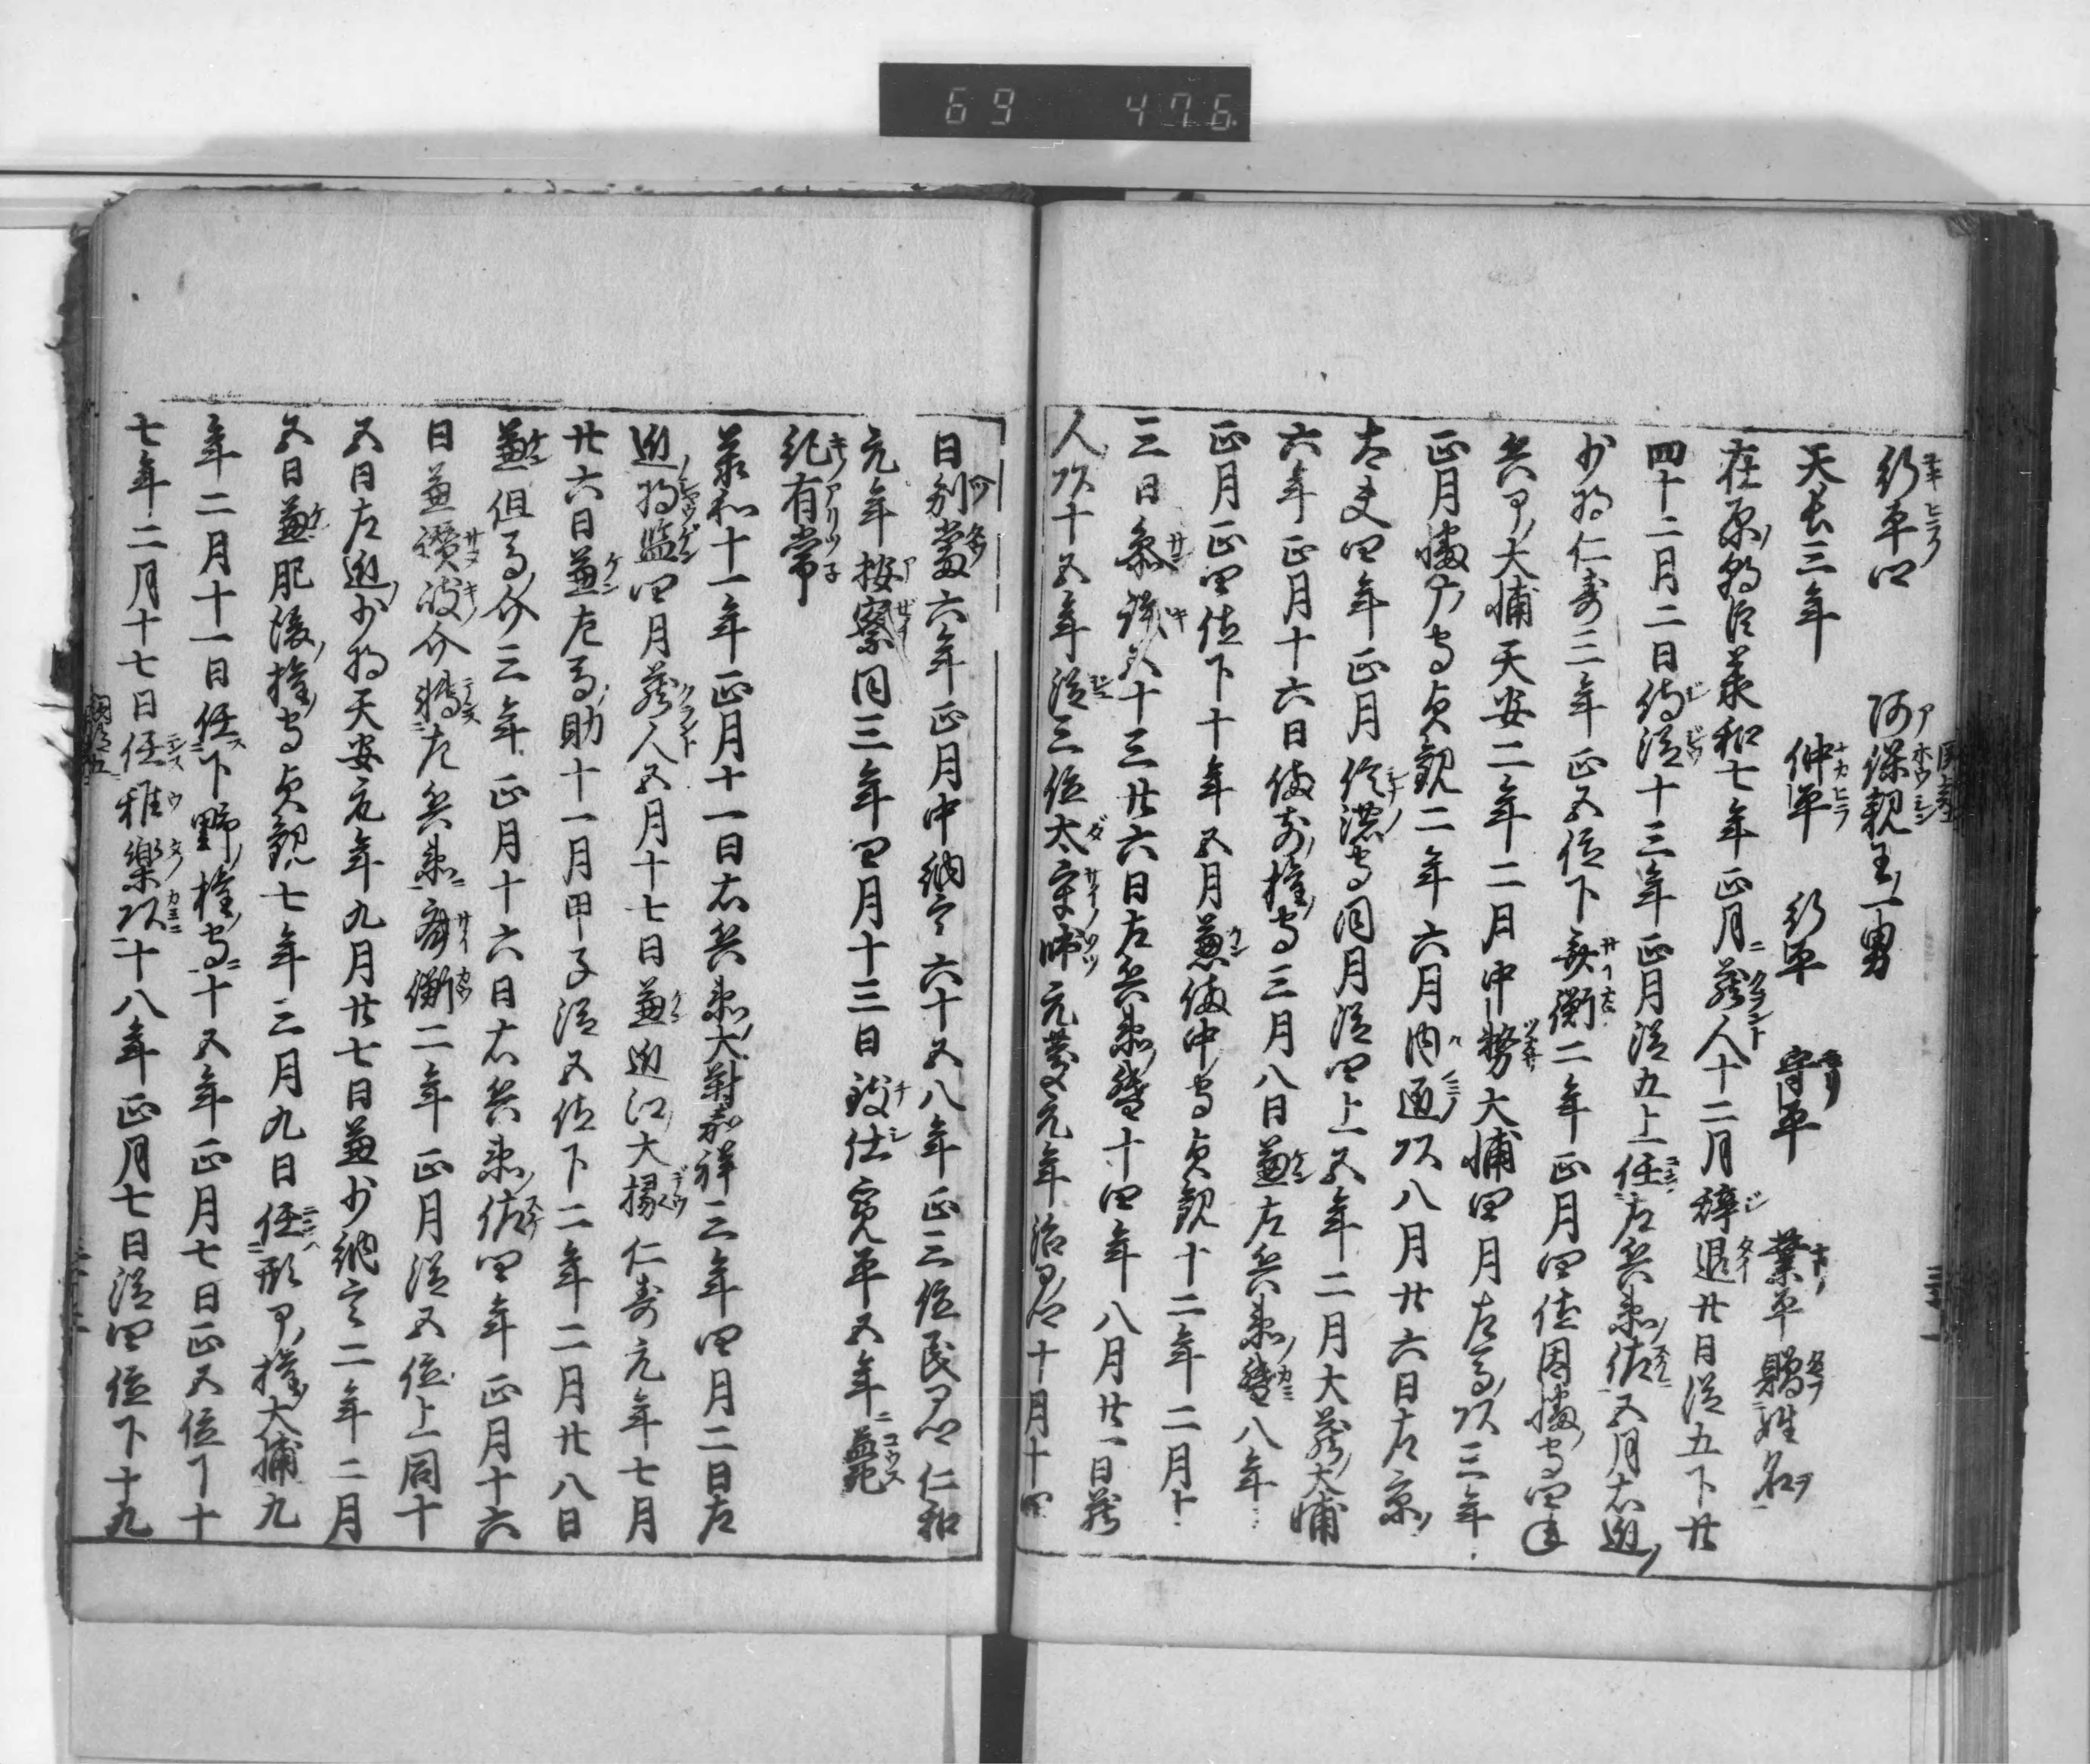 69 476
行平公 阿保親王一男
天長三年 仲平 行平 守平 業平 賜姓名
在原朝臣承和七年正月蔵人十二月辞退廿日従五下廿
四十二月二日侍従十三年正月従五上任左兵衛佐五月右近
少将仁寿三年正五位下斉衡二年正月四位因幡守四年
兵ア大輔天安二年二月中務大輔四月左馬頭三年
正月播ア守貞観二年六月内匠頭八月廿六日左京
大夫四年正月信濃守同月従四上五年二月大蔵大輔
六年正月十六日備前権守三月八日兼左兵衛督八年
正月正四位下十年五月兼備中守貞観十二年二月十
三日参議五十三廿六日左兵衛督十四年八月廿一日蔵
人頭十五年従三位太宰帥元慶元年治ア卿十月十四
日別当六年正月中納言六十五八年正三位民ア卿仁和
元年按察同三年四月十三日致仕寛平五年薨
紀有常
承和十一年正月十一日右兵衛大尉嘉祥三年四月二日左
近将監四月蔵人五月十七日兼近江大掾仁寿元年七月
廿六日兼左馬助十一月甲子従五位下二年二月廿八日
兼但馬介三年正月十六日右兵衛佐四年正月十六
日兼讃岐介遷左兵衛斉衡二年正月従五位上同十
五日左近少将天安元年九月廿七日兼少納言二年二月
五日兼肥後権守貞観七年三月九日任刑ア権大輔九
年二月十一日任下野権守十五年正月七日正五位下十
七年二月十七日任雅楽頭十八年正月七日従四位下十九